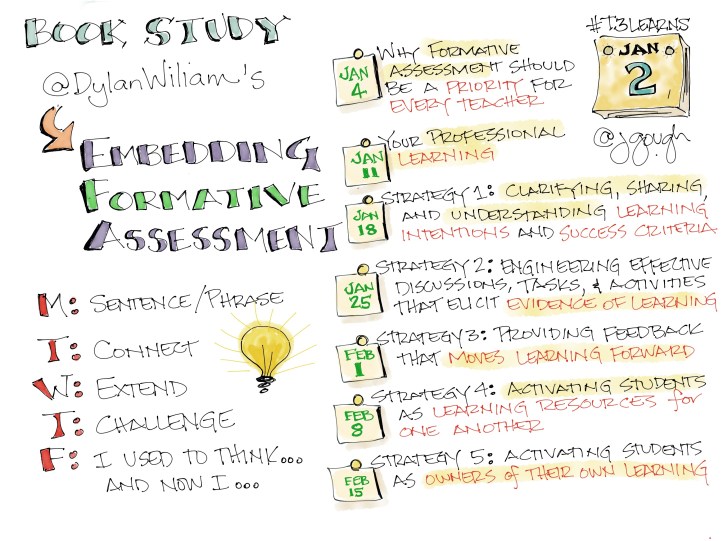 BOOK STUDY
@DylanWiliam's
EMBEDDING
FORMATIVE
ASSESSMENT
M: SENTENCE/PHRASE
T: CONNECT
W: EXTEND
T: CHALLENGE
F: I USED TO THINK...
AND NOW I...
#T3LEARNS
JAN
2
@jgough
JAN
4
WHY FORMATIVE
ASSESSMENT SHOULD
BE A PRIORITY FOR
EVERY TEACHER
JAN
11
YOUR PROFESSIONAL
LEARNING
JAN
18
STRATEGY 1: CLARIFYING, SHARING,
AND UNDERSTANDING LEARNING
INTENTIONS AND SUCCESS CRITERIA
JAN
25
STRATEGY 2: ENGINEERING EFFECTIVE
DISCUSSIONS, TASKS, & ACTIVITIES
THAT ELICIT EVIDENCE OF LEARNING
FEB
1
STRATEGY 3: PROVIDING FEEDBACK
THAT MOVES LEARNING FORWARD
FEB
8
STRATEGY 4: ACTIVATING STUDENTS
AS LEARNING RESOURCES for
ONE ANOTHER
FEB
15
STRATEGY 5: ACTIVATING STUDENTS
AS OWNERS of THEIR OWN LEARNING